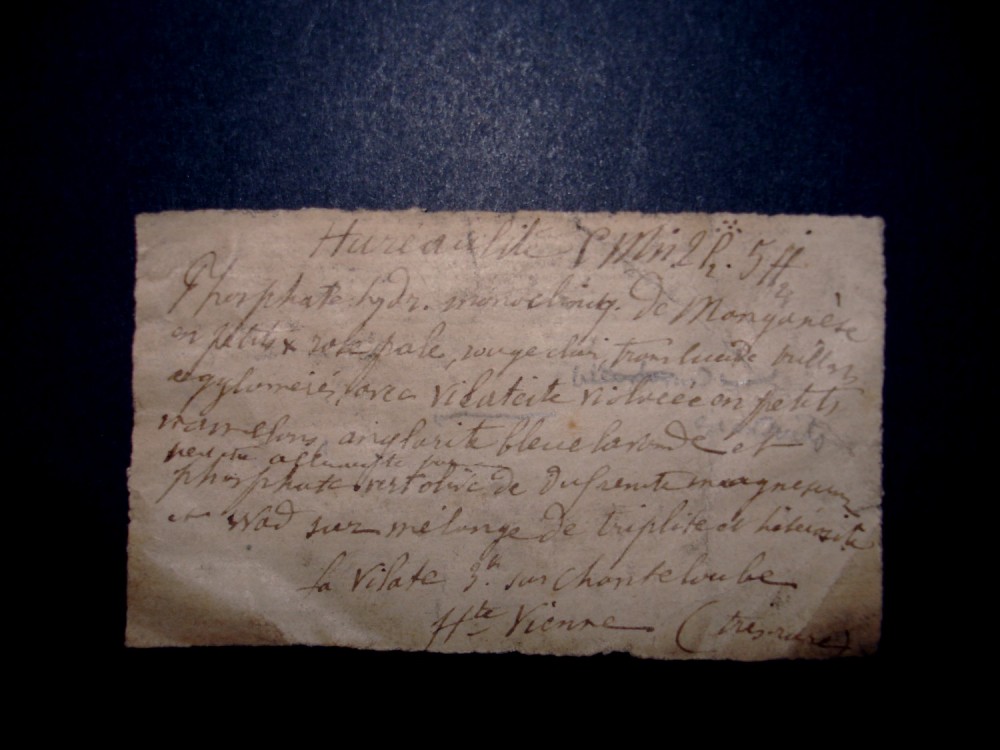 Huréaulite P Mn 2 h. 5
Phosphate hydr. monocliniq. de Manganèse
en petits x rose pale, rouge clair, translucide
agglomérés, avec Vilateite violacée en petits
mamelons, anglarite bleue lavande et
phosphate vert olive de Dufrenite
et Wad sur mélange de triplite et hétérosite
La Vilate sur Chanteloube
Hte Vienne (très rare)